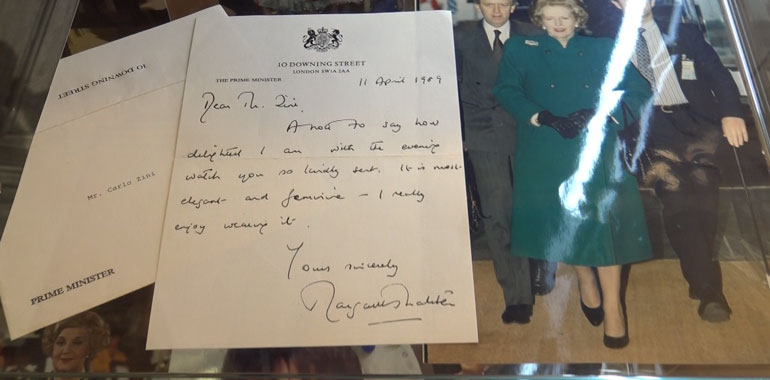 10 DOWNING STREET
Mr. Carlo Zini
PRIME MINISTER
10 DOWNING STREET
LONDON SW1A 2AA
THE PRIME MINISTER
11 April 1989
Dear Mr. Zini,
A note to say how
delighted I am with the evening
watch you so kindly sent. It is most
elegant and feminine – I really
enjoy wearing it.
Yours sincerely
Margaret Thatcher